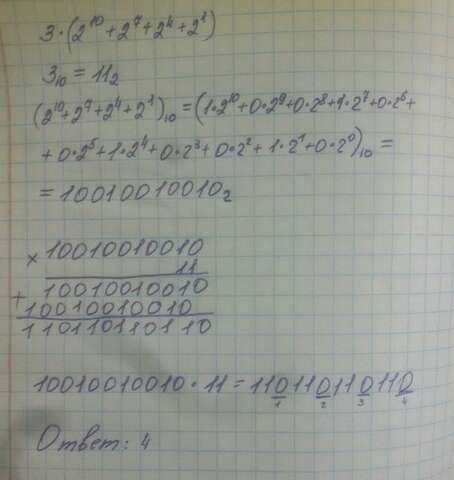 3·(2¹⁰+2⁷+2⁴+2¹)
3₁₀ = 11₂
(2¹⁰+2⁷+2⁴+2¹)₁₀ = (1·2¹⁰+0·2⁹+0·2⁸+1·2⁷+0·2⁶+
+0·2⁵+1·2⁴+0·2³+0·2²+1·2¹+0·2⁰)₁₀ =
= 10010010010₂
× 10010010010
11
+ 10010010010
10010010010
110110110110
10010010010·11 = 110110110110
1 2 3 4
Ответ: 4